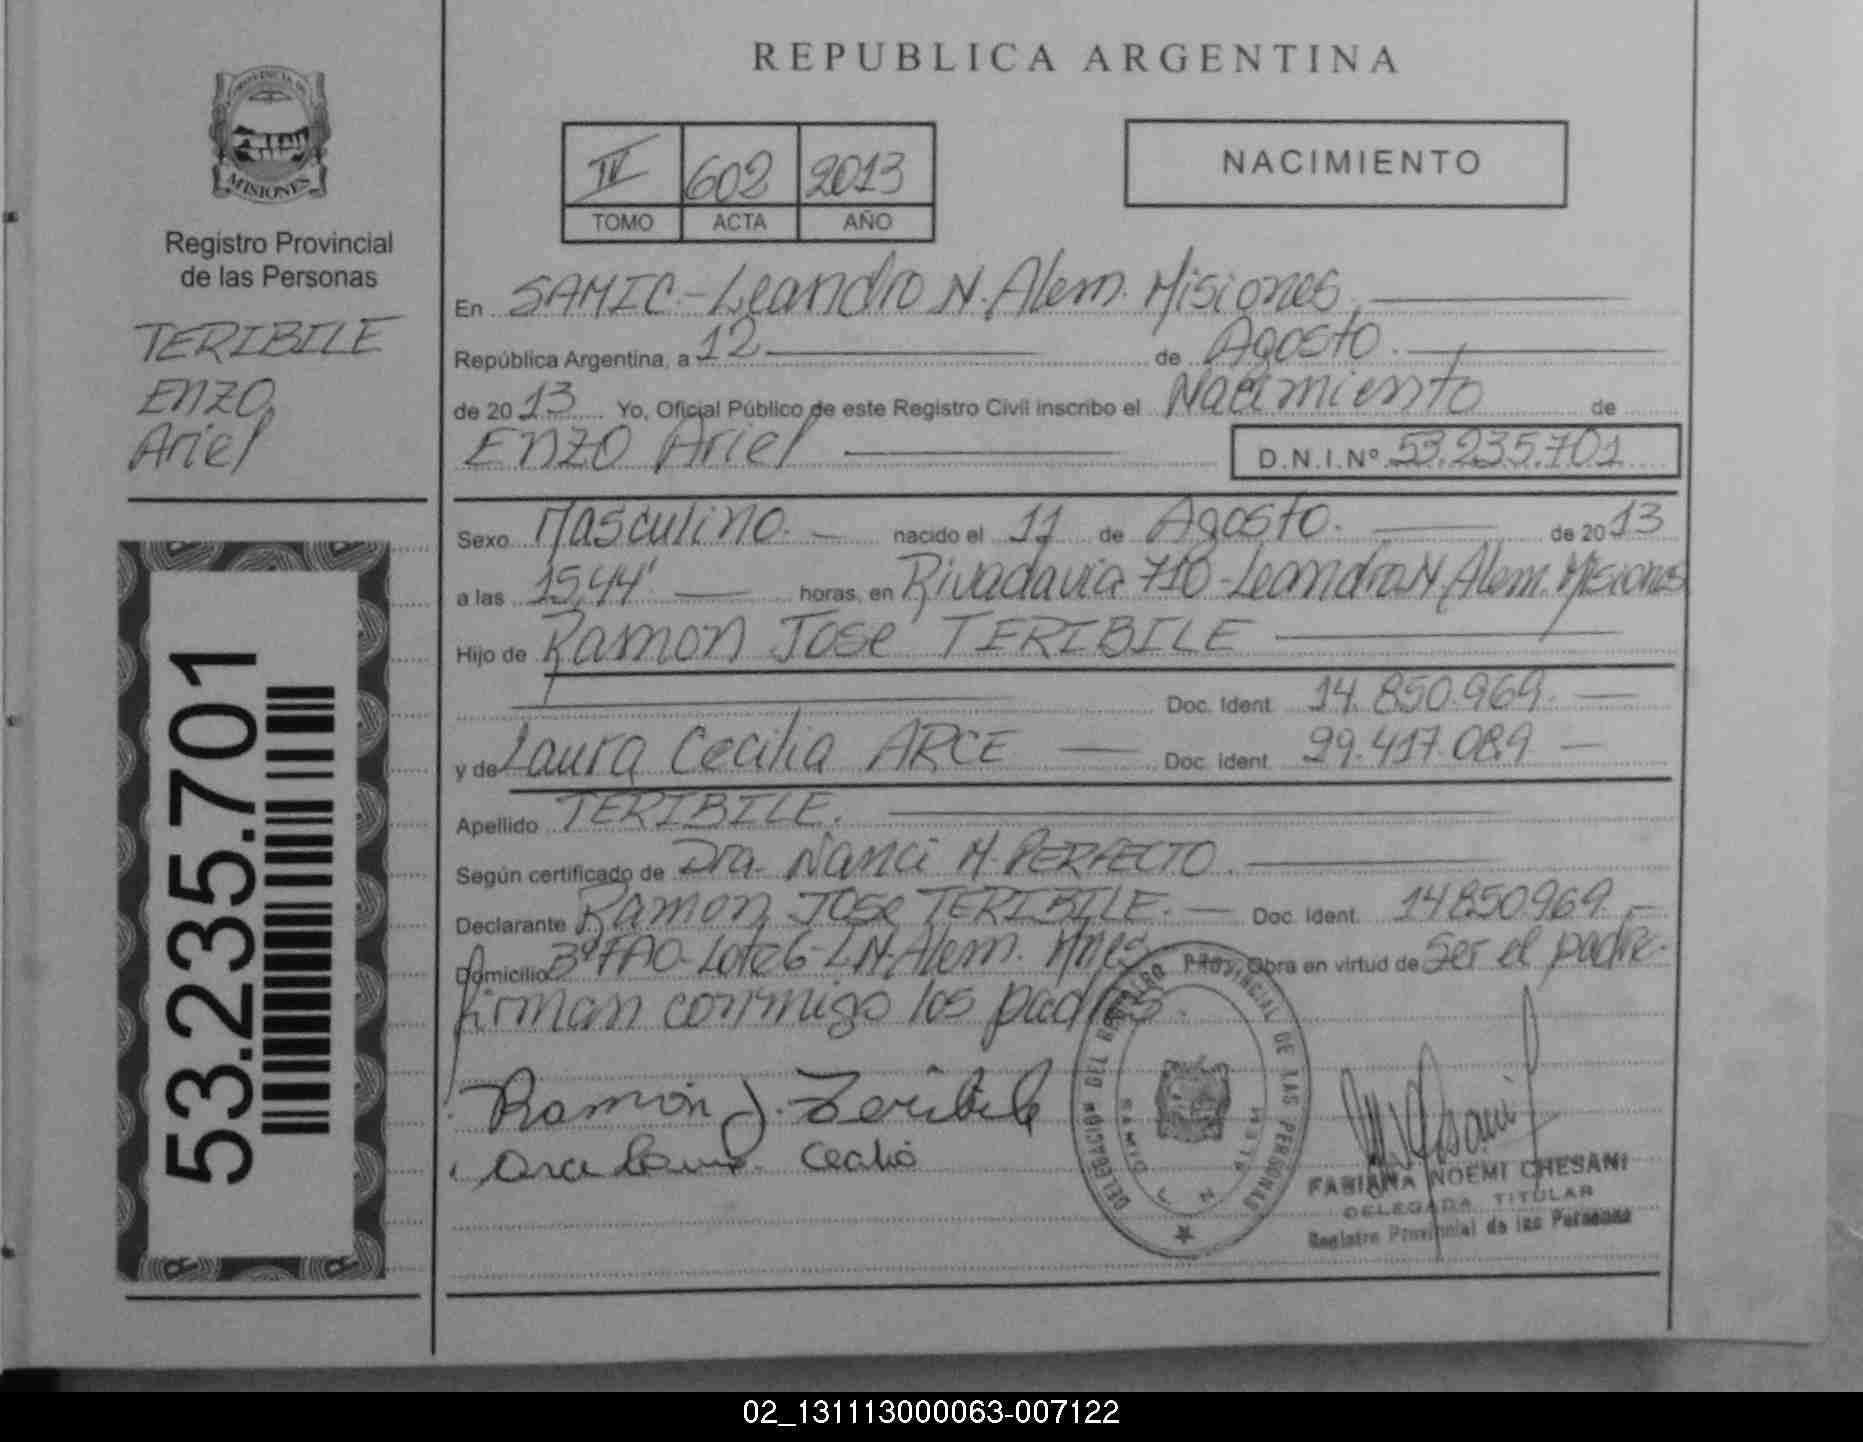 REPUBLICA ARGENTINA
PROVINCIA DE
MISIONES
Registro Provincial
de las Personas
TERIBILE
ENZO
Ariel
53.235.701
IV 602 2013
TOMO ACTA AÑO
NACIMIENTO
En SAMIC-Leandro N. Alem. Misiones
República Argentina, a 12 de Agosto.
de 2013 Yo, Oficial Público de este Registro Civil inscribo el Nacimiento de
ENZO Ariel D.N.I.Nº 53.235.701
Sexo Masculino. nacido el 11 de Agosto. de 2013
a las 15,44' horas, en Rivadavia 710-Leandro N Alem. Misiones
Hijo de Ramon Jose TERIBILE
Doc. Ident. 14.850.969.
y de Laura Cecilia ARCE Doc. Ident. 29.417.089
Apellido TERIBILE.
Según certificado de Dra. Nanci M. PERFECTO.
Declarante Ramon Jose TERIBILE. Doc. Ident. 14850969
Domicilio Lote 6-LN.Alem. Mnes Obra en virtud de ser el padre.
firman conmigo los padres.
Ramón J. Teribile
Arce Laura Cecilia
DELEGACION DEL REGISTRO PROVINCIAL DE LAS PERSONAS
FABIANA NOEMI CHESANI
DELEGADA TITULAR
Registro Provincial de las Personas
02_131113000063-007122